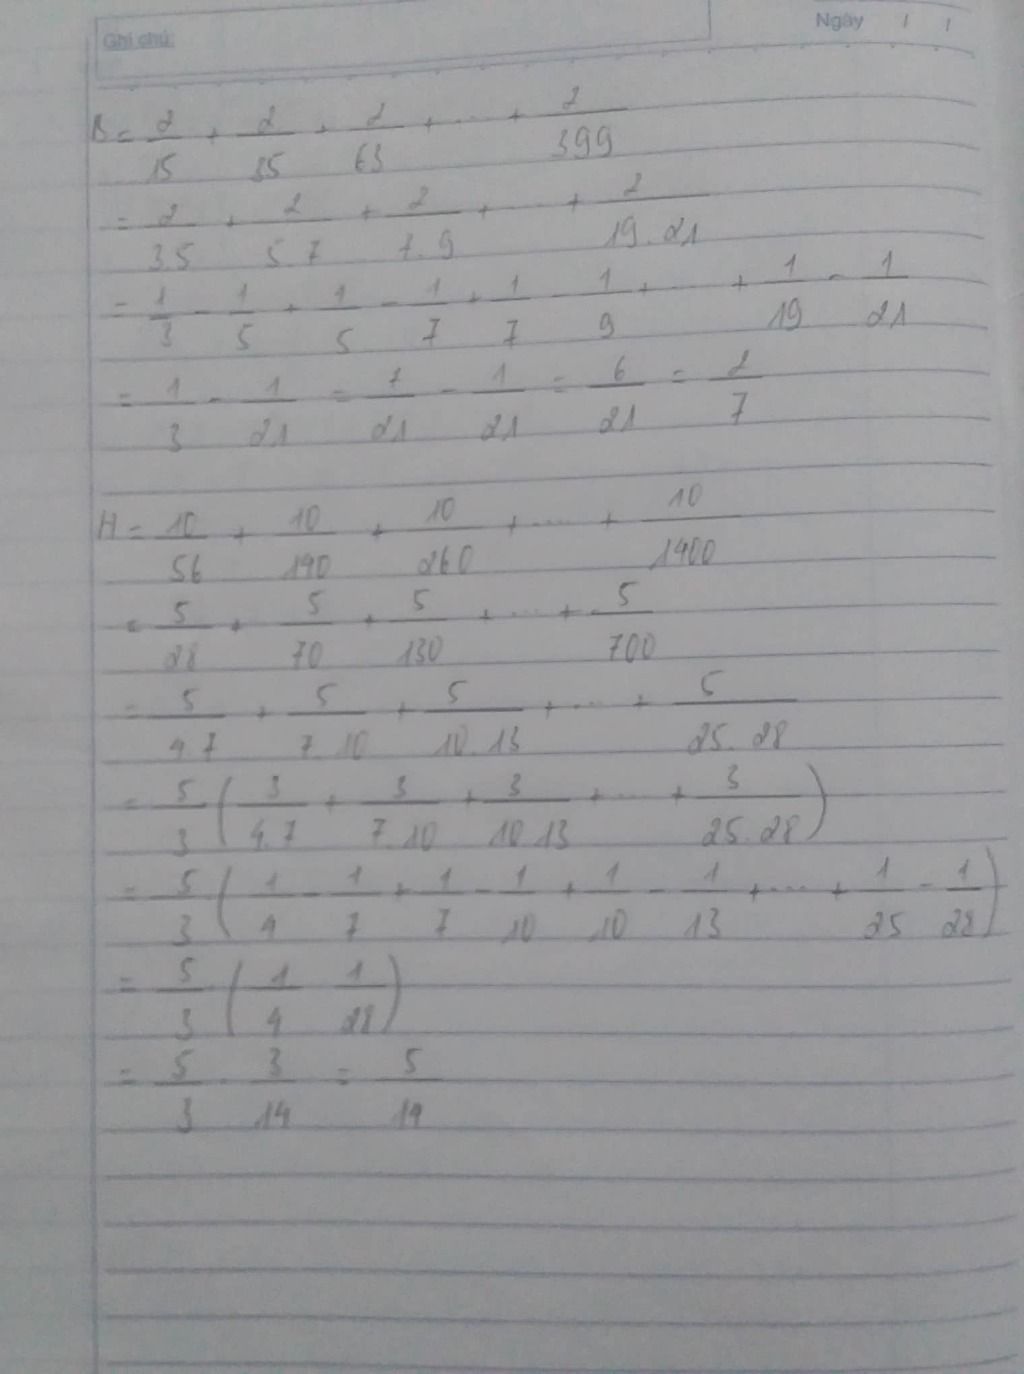 Ghi chú:
Ngày / /
B = 2/15 + 2/35 + 2/63 + .... + 2/399
= 2/3.5 + 2/5.7 + 2/7.9 + .... + 2/19.21
= 1/3 - 1/5 + 1/5 - 1/7 + 1/7 - 1/9 + .... + 1/19 - 1/21
= 1/3 - 1/21 = 7/21 - 1/21 = 6/21 = 2/7
H = 10/56 + 10/140 + 10/260 + .... + 10/1400
= 5/28 + 5/70 + 5/130 + .... + 5/700
= 5/4.7 + 5/7.10 + 5/10.13 + .... + 5/25.28
= 5/3 (3/4.7 + 3/7.10 + 3/10.13 + .... + 3/25.28)
= 5/3 (1/4 - 1/7 + 1/7 - 1/10 + 1/10 - 1/13 + .... + 1/25 - 1/28)
= 5/3 (1/4 1/28)
= 5/3 . 3/14 = 5/14